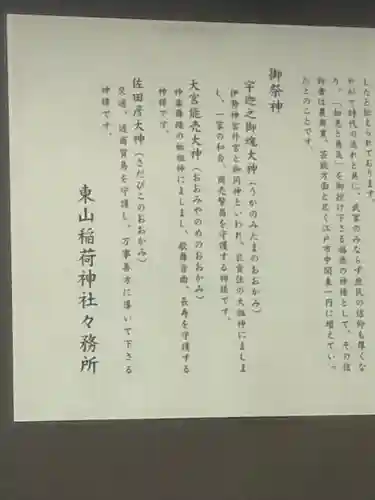 したと伝えられております。
やがて時代の流れと共に、武家のみならず庶民の信仰も厚くな
り、「知恵と勇気」を御授け下さる福徳の神様として、その信
仰者は農商業、芸能方面と広く江戸市中関東一円に増えていっ
たとのことです。
御祭神
宇迦之御魂大神(うかのみたまのおおかみ)
伊勢神宮外宮と御同神といわれ、衣食住の大祖神にまし
し、一家の和合、商売繁昌を守護する神様です。
大宮能売大神(おおみやのめのおおかみ)
神楽舞踊の祖神にましまし、歌舞音曲、長寿を守護する
神様です。
佐田彦大神(さだひこのおおかみ)
交通、通商貿易を守護し、万事善方に導いて下さる
神様です。
東山稲荷神社々務所